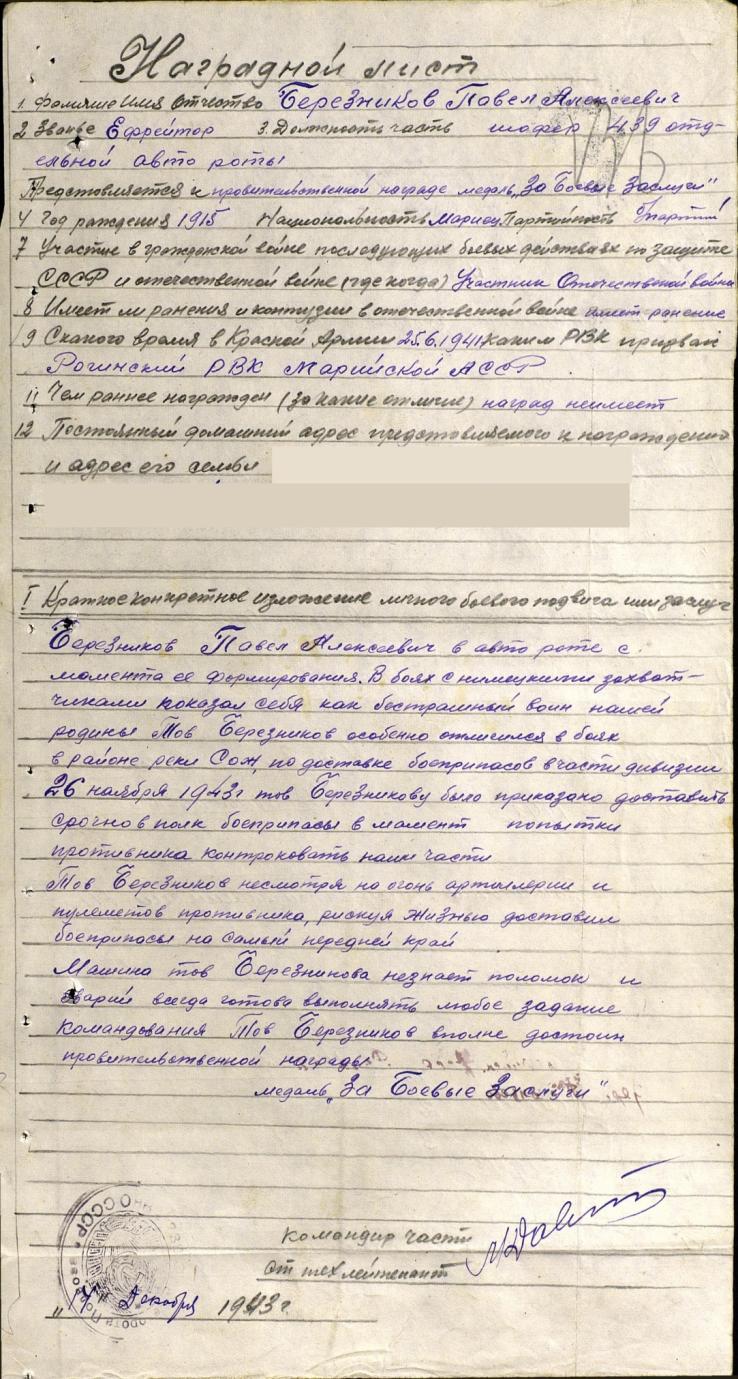 Наградной лист
1. Фамилие Имя Отчество Березников Павел Алексеевич
2 Званье Ефрейтор 3. Должность часть шофер 439 отд-
ельной авто роты
Предстовляется к провительственной награде медаль „За Боевые Заслуги"
4 Год рождения 1915 Национольность Мариец Партийность б/партий
7 Участие в гражданской войне последующих боевых действиях по защите
СССР и отечественной войне (где когда) Участник Отечественой войны
8 Имеет ли ранения и контузии в отечественной войне имеет ранение
9 Скакого время в Красной Армии 25.6.1941 Каким РВК призван
Рогинский РВК Марийской АССР
11 Чем раннее награжден (за какие отличие) наград неимеет
12 Постоянный домашний адрес предстовляемого к награждению
и адрес его семьи
I Краткое конкретное изложение личного боевого подвига или заслуг
Березников Павел Алексеевич в авто роте с
момента ее формирования. В боях с немецкими захват-
чиками показал себя как бестрашный воин нашей
родины Тов Березников особенно отличился в боях
в районе реки Сож, по доставке боеприпасов в части дивизии
26 ноября 1943г тов Березникову было приказано доставить
срочно в полк боеприпасы в мамент попытки
противника контроковать наши части
Тов Березников несмотря на огонь артиллерии и
пулеметов противника, рискуя жизнью доставил
боеприпасы на самый передней край
Машина тов Березникова незнает поломок и
аварий всегда готова выполнять любое задание
командования Тов Березников вполне достоин
провительственной награды
медаль „За Боевые Заслуги"
Командир части
ст тех лейтенант
„14" Декабря 1943г